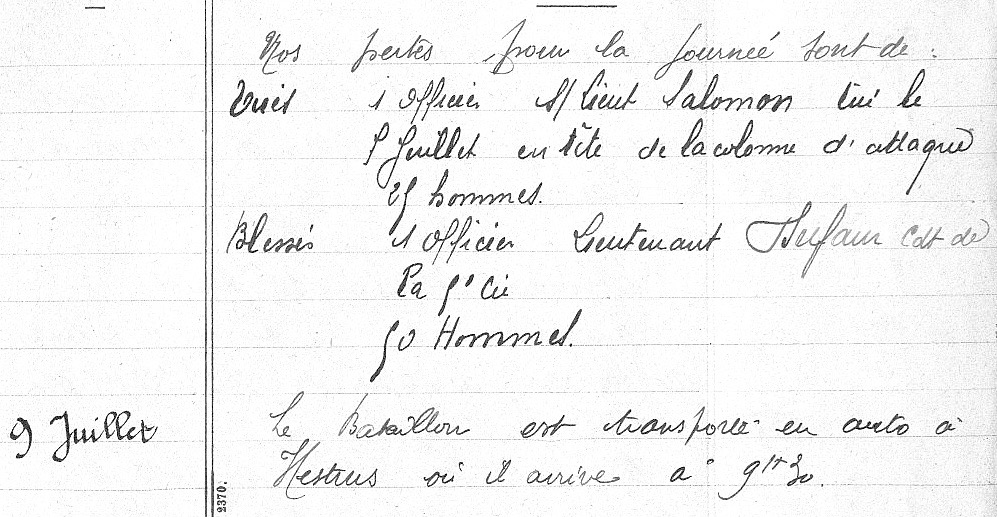 Nos pertes pour la journée sont de :
Tués 1 Officier S/Lieut Salomon tué le
5 Juillet en tête de la colonne d'attaque
25 hommes.
Blessés 1 Officier Lieutenant Cdt de
la 5e Cie
50 Hommes.
9 Juillet Le Bataillon est transporté en auto à
Hestrus où il arrive à 9H30.
2370.